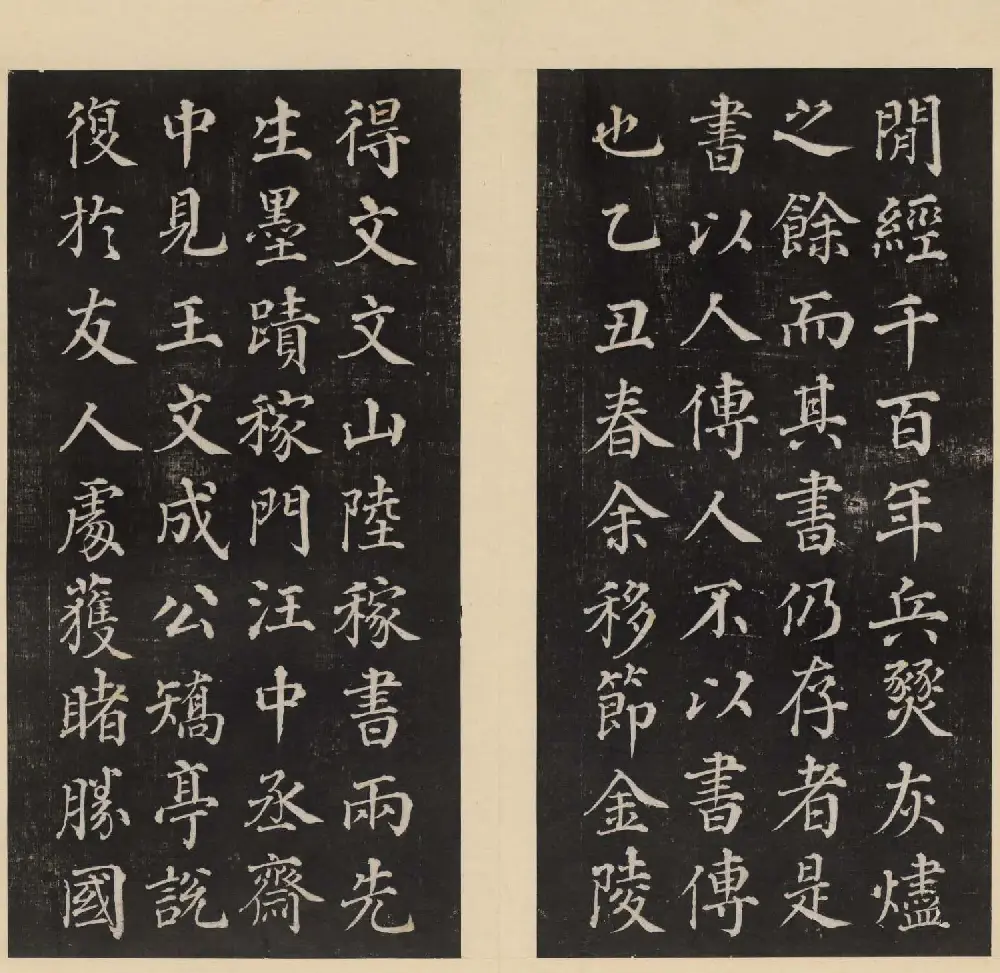 閒經千百年兵燹灰燼
之餘而其書仍存者是
書以人傳人不以書傳
也乙丑春余移節金陵
得文文山陸稼書兩先
生墨蹟稼門汪中丞齋
中見王文成公矯亭說
復於友人處獲睹勝國